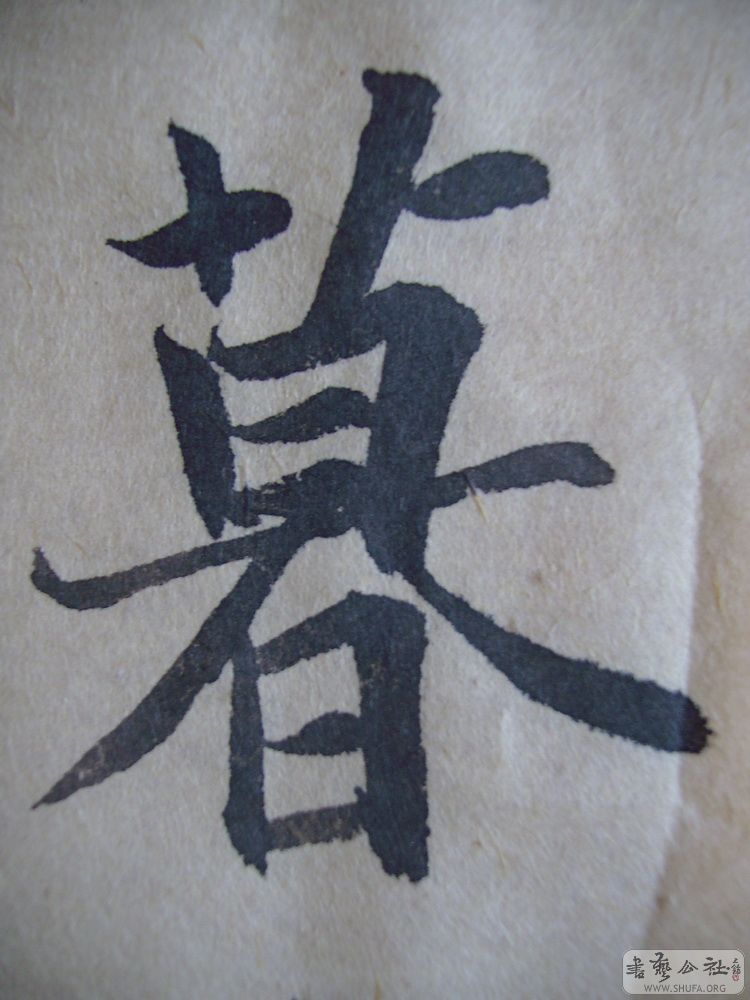 暮
書藝公社
WWW.SHUFA.ORG